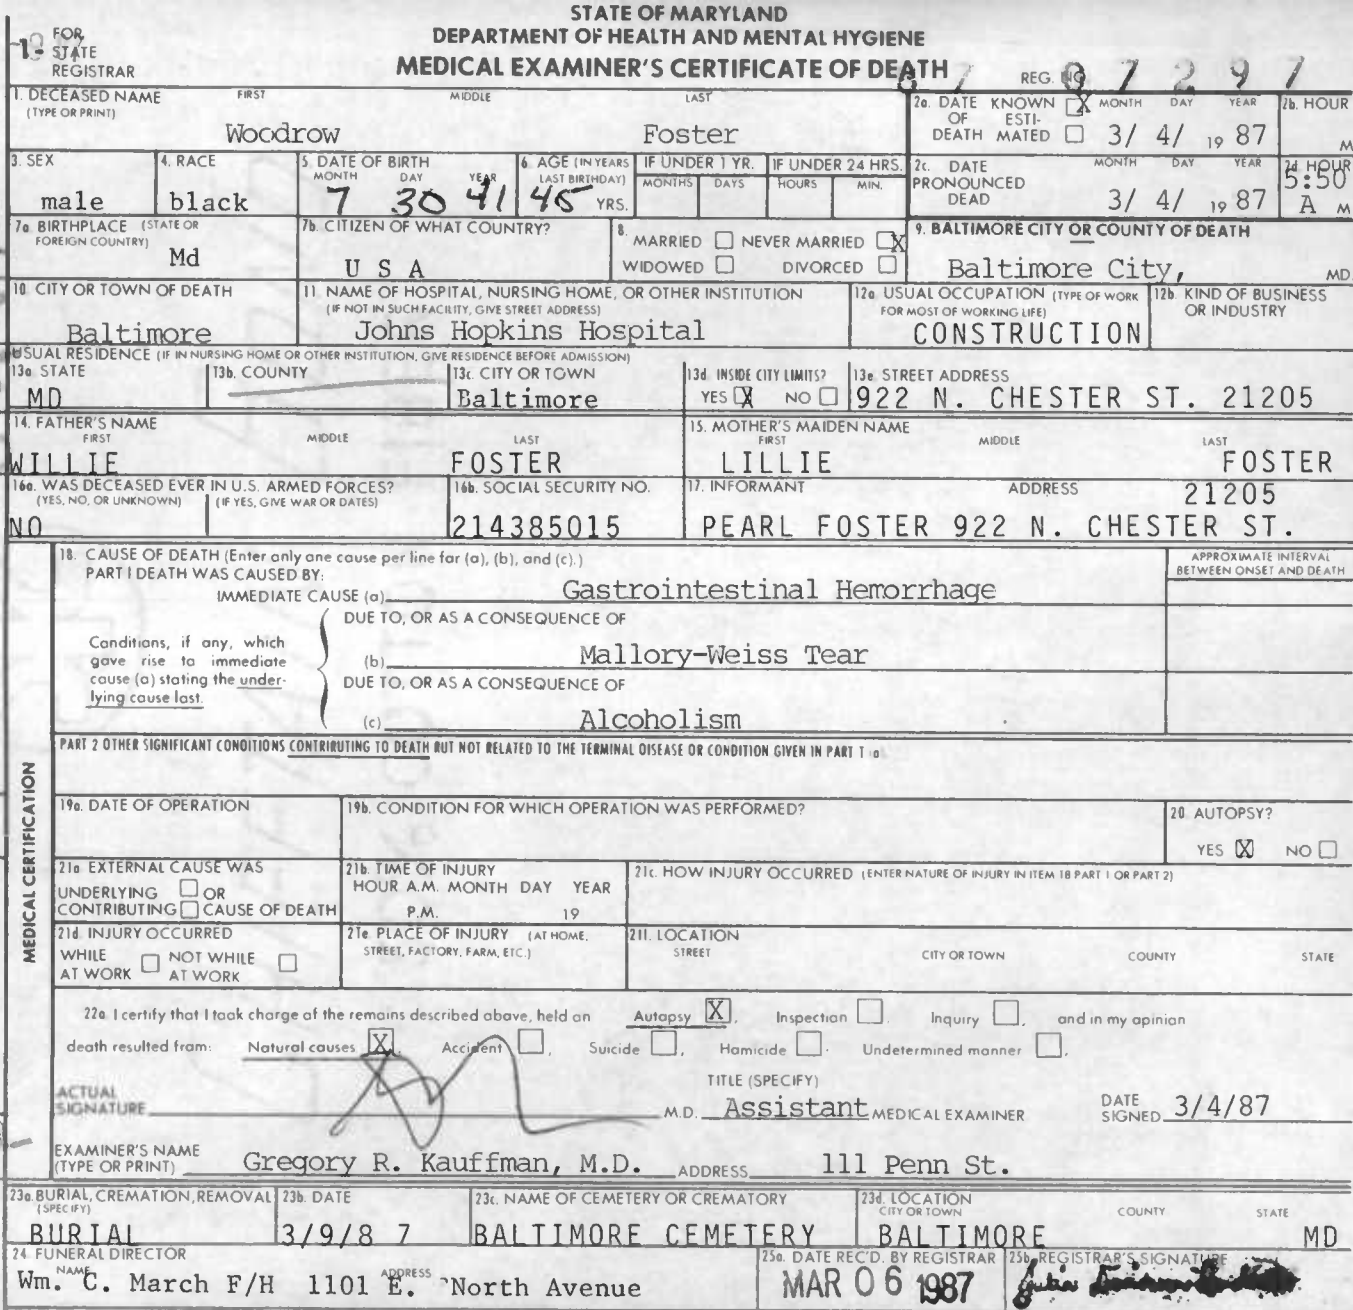 STATE OF MARYLAND
DEPARTMENT OF HEALTH AND MENTAL HYGIENE
MEDICAL EXAMINER'S CERTIFICATE OF DEATH
1- FOR STATE REGISTRAR
REG. NO. 87 07297
1. DECEASED NAME (TYPE OR PRINT) FIRST MIDDLE LAST
Woodrow Foster
2a. DATE OF DEATH KNOWN X ESTIMATED MONTH DAY YEAR 2b. HOUR
3/ 4/ 19 87 M
3. SEX 4. RACE 5. DATE OF BIRTH MONTH DAY YEAR 6. AGE (IN YEARS LAST BIRTHDAY) IF UNDER 1 YR. MONTHS DAYS IF UNDER 24 HRS. HOURS MIN.
male black 7 30 41 45 YRS.
2c. DATE PRONOUNCED DEAD MONTH DAY YEAR 2d HOUR
3/ 4/ 19 87 5:50 A M
7a. BIRTHPLACE (STATE OR FOREIGN COUNTRY) 7b. CITIZEN OF WHAT COUNTRY? 8. MARRIED NEVER MARRIED X WIDOWED DIVORCED 9. BALTIMORE CITY OR COUNTY OF DEATH
Md U S A Baltimore City, MD.
10. CITY OR TOWN OF DEATH 11. NAME OF HOSPITAL, NURSING HOME, OR OTHER INSTITUTION (IF NOT IN SUCH FACILITY, GIVE STREET ADDRESS) 12a. USUAL OCCUPATION (TYPE OF WORK FOR MOST OF WORKING LIFE) 12b. KIND OF BUSINESS OR INDUSTRY
Baltimore Johns Hopkins Hospital CONSTRUCTION
USUAL RESIDENCE (IF IN NURSING HOME OR OTHER INSTITUTION, GIVE RESIDENCE BEFORE ADMISSION)
13a STATE 13b. COUNTY 13c. CITY OR TOWN 13d. INSIDE CITY LIMITS? 13e. STREET ADDRESS
MD Baltimore YES X NO 922 N. CHESTER ST. 21205
14. FATHER'S NAME FIRST MIDDLE LAST 15. MOTHER'S MAIDEN NAME FIRST MIDDLE LAST
WILLIE FOSTER LILLIE FOSTER
16a. WAS DECEASED EVER IN U.S. ARMED FORCES? (YES, NO, OR UNKNOWN) (IF YES, GIVE WAR OR DATES) 16b. SOCIAL SECURITY NO. 17. INFORMANT ADDRESS 21205
NO 214385015 PEARL FOSTER 922 N. CHESTER ST.
MEDICAL CERTIFICATION
18. CAUSE OF DEATH (Enter only one cause per line for (a), (b), and (c).)
PART I DEATH WAS CAUSED BY:
APPROXIMATE INTERVAL BETWEEN ONSET AND DEATH
IMMEDIATE CAUSE (a) Gastrointestinal Hemorrhage
DUE TO, OR AS A CONSEQUENCE OF
Conditions, if any, which gave rise to immediate cause (a) stating the underlying cause last.
(b) Mallory-Weiss Tear
DUE TO, OR AS A CONSEQUENCE OF
(c) Alcoholism
PART 2 OTHER SIGNIFICANT CONDITIONS CONTRIBUTING TO DEATH BUT NOT RELATED TO THE TERMINAL DISEASE OR CONDITION GIVEN IN PART 1 (a)
19a. DATE OF OPERATION 19b. CONDITION FOR WHICH OPERATION WAS PERFORMED? 20 AUTOPSY?
YES X NO
21a EXTERNAL CAUSE WAS UNDERLYING OR CONTRIBUTING CAUSE OF DEATH
21b. TIME OF INJURY HOUR A.M. MONTH DAY YEAR P.M. 19
21c. HOW INJURY OCCURRED (ENTER NATURE OF INJURY IN ITEM 18 PART 1 OR PART 2)
21d INJURY OCCURRED WHILE AT WORK NOT WHILE AT WORK
21e. PLACE OF INJURY (AT HOME, STREET, FACTORY, FARM, ETC.)
21f. LOCATION STREET CITY OR TOWN COUNTY STATE
22a. I certify that I took charge of the remains described above, held an Autopsy X, Inspection, Inquiry, and in my opinion
death resulted from: Natural causes X, Accident, Suicide, Homicide, Undetermined manner.
ACTUAL SIGNATURE M.D. TITLE (SPECIFY) Assistant MEDICAL EXAMINER DATE SIGNED 3/4/87
EXAMINER'S NAME (TYPE OR PRINT) Gregory R. Kauffman, M.D. ADDRESS 111 Penn St.
23a. BURIAL, CREMATION, REMOVAL (SPECIFY) 23b. DATE 23c. NAME OF CEMETERY OR CREMATORY 23d. LOCATION CITY OR TOWN COUNTY STATE
BURIAL 3/9/8 7 BALTIMORE CEMETERY BALTIMORE MD
24 FUNERAL DIRECTOR NAME ADDRESS 25a. DATE REC'D. BY REGISTRAR 25b. REGISTRAR'S SIGNATURE
Wm. C. March F/H 1101 E. North Avenue MAR 06 1987